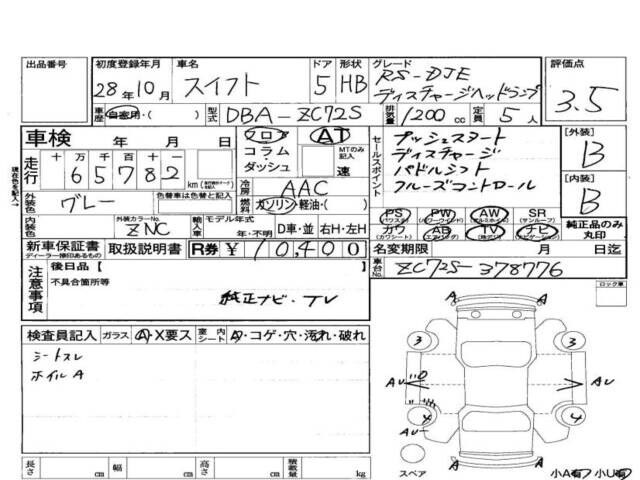 出品番号
初度登録年月
28年10月
車名
スイフト
ドア
5
形状
HB
グレード
RS-DJE
ディスチャージヘッドランプ
評価点
3.5
車歴
自家用・( )
型式
DBA-ZC72S
排気量
1200 cc
定員
5人
車検 年 月 日
フロア
コラム
ダッシュ
AT
MTのみ記入
速
セールスポイント
プッシュスタート
ディスチャージ
パドルシフト
クルーズコントロール
[外装]
B
[内装]
B
現在色を記入
走行
十万千百十
65782
km
冷房
AAC
燃料
ガソリン・軽油・( )
外装色
グレー
色替車は色替と記入
内装色
外装カラーNo.
ZNC
輸入車
モデル年式
年・不明
D車・並
右H・左H
PS
PW
AW
SR
(サンルーフ)
カワ
(カワシート)
AB
TV
ナビ
純正品のみ丸印
新車保証書
ディーラー捺印あるもの
取扱説明書
R券 ¥10,400
名変期限 月 日迄
車台No.
ZC72S-378776
注意事項
後日品【
不具合箇所等
純正ナビ・TV
ロック車
検査員記入
ガラス
A・X要ス
室内シート
A・コゲ・穴・汚れ・破れ
シートスレ
ホイルA
A
A
3
3
AU
AU
4
4
AU
A
A
スペア
小A有 小U有
長さ cm
幅 cm
高さ cm
積載量 kg